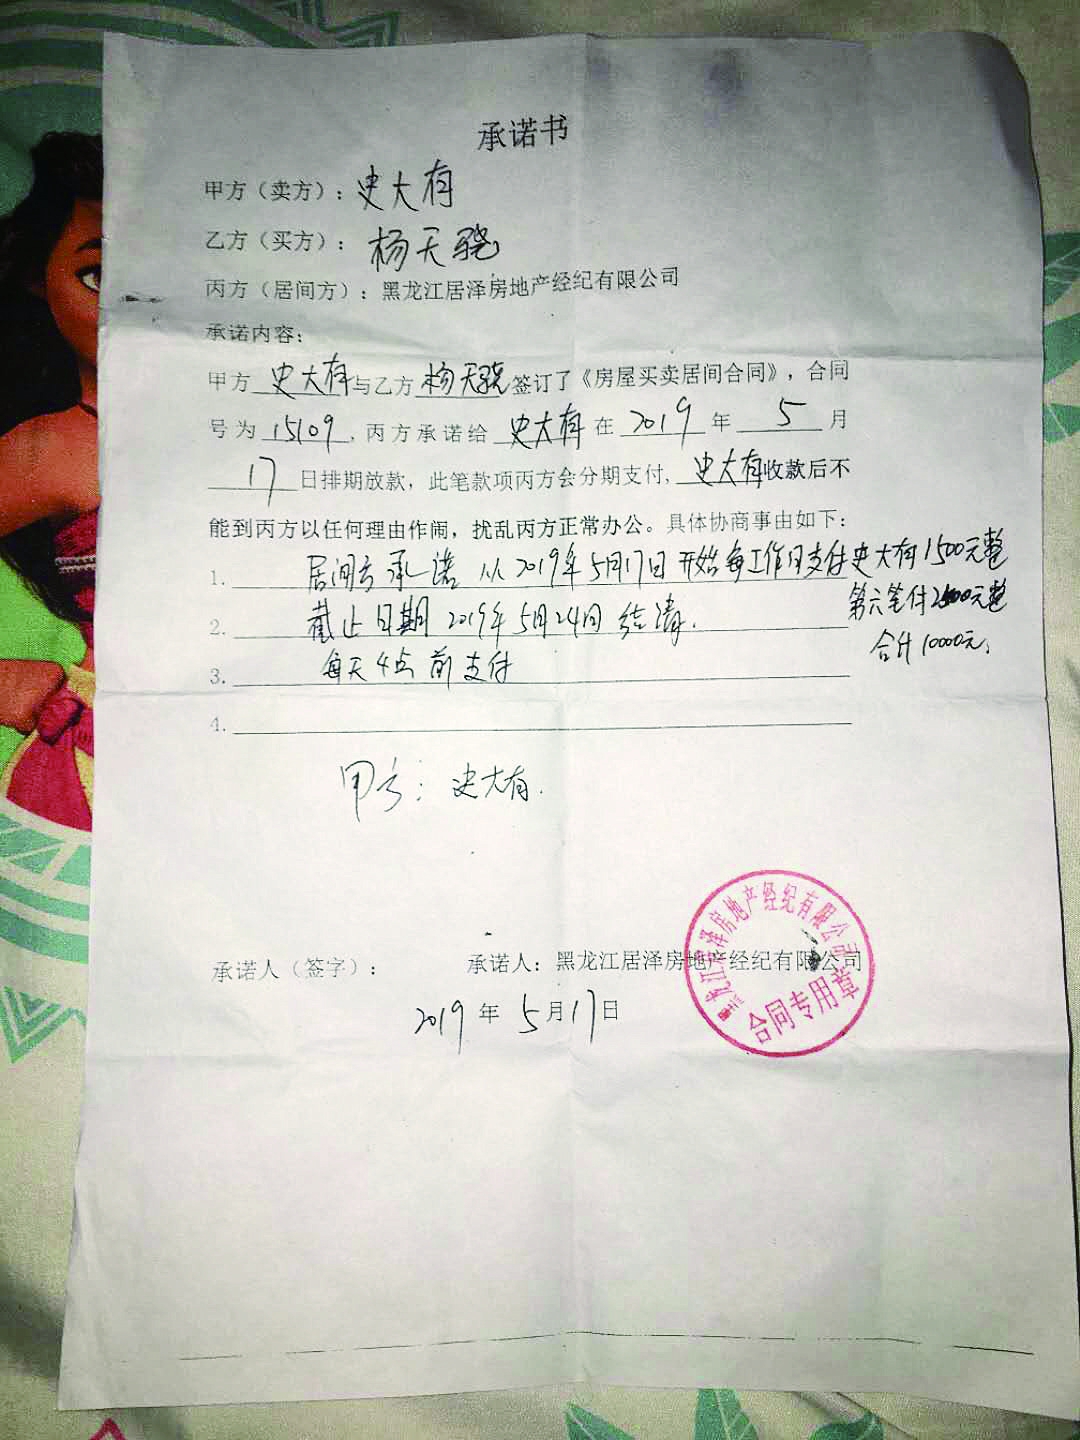 承诺书
甲方（卖方）：史大有
乙方（买方）：杨天骁
丙方（居间方）：黑龙江居泽房地产经纪有限公司
承诺内容：
甲方史大有与乙方杨天骁签订了《房屋买卖居间合同》，合同
号为15109，丙方承诺给史大有在2019年5月
17日排期放款，此笔款项丙方会分期支付，史大有收款后不
能到丙方以任何理由作闹，扰乱丙方正常办公。具体协商事由如下：
1.居间方承诺从2019年5月17日开始每工作日支付史大有1500元整
第六笔付2500元整
2.截止日期2019年5月24日结清.
合计10000元;
3.每天4点前支付
4.
甲方：史大有.
承诺人（签字）：
承诺人：黑龙江居泽房地产经纪有限公司
2019年5月17日
黑龙江居泽房地产经纪有限公司
合同专用章